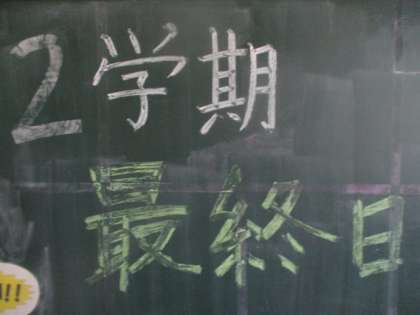 2学期
最終日
!!